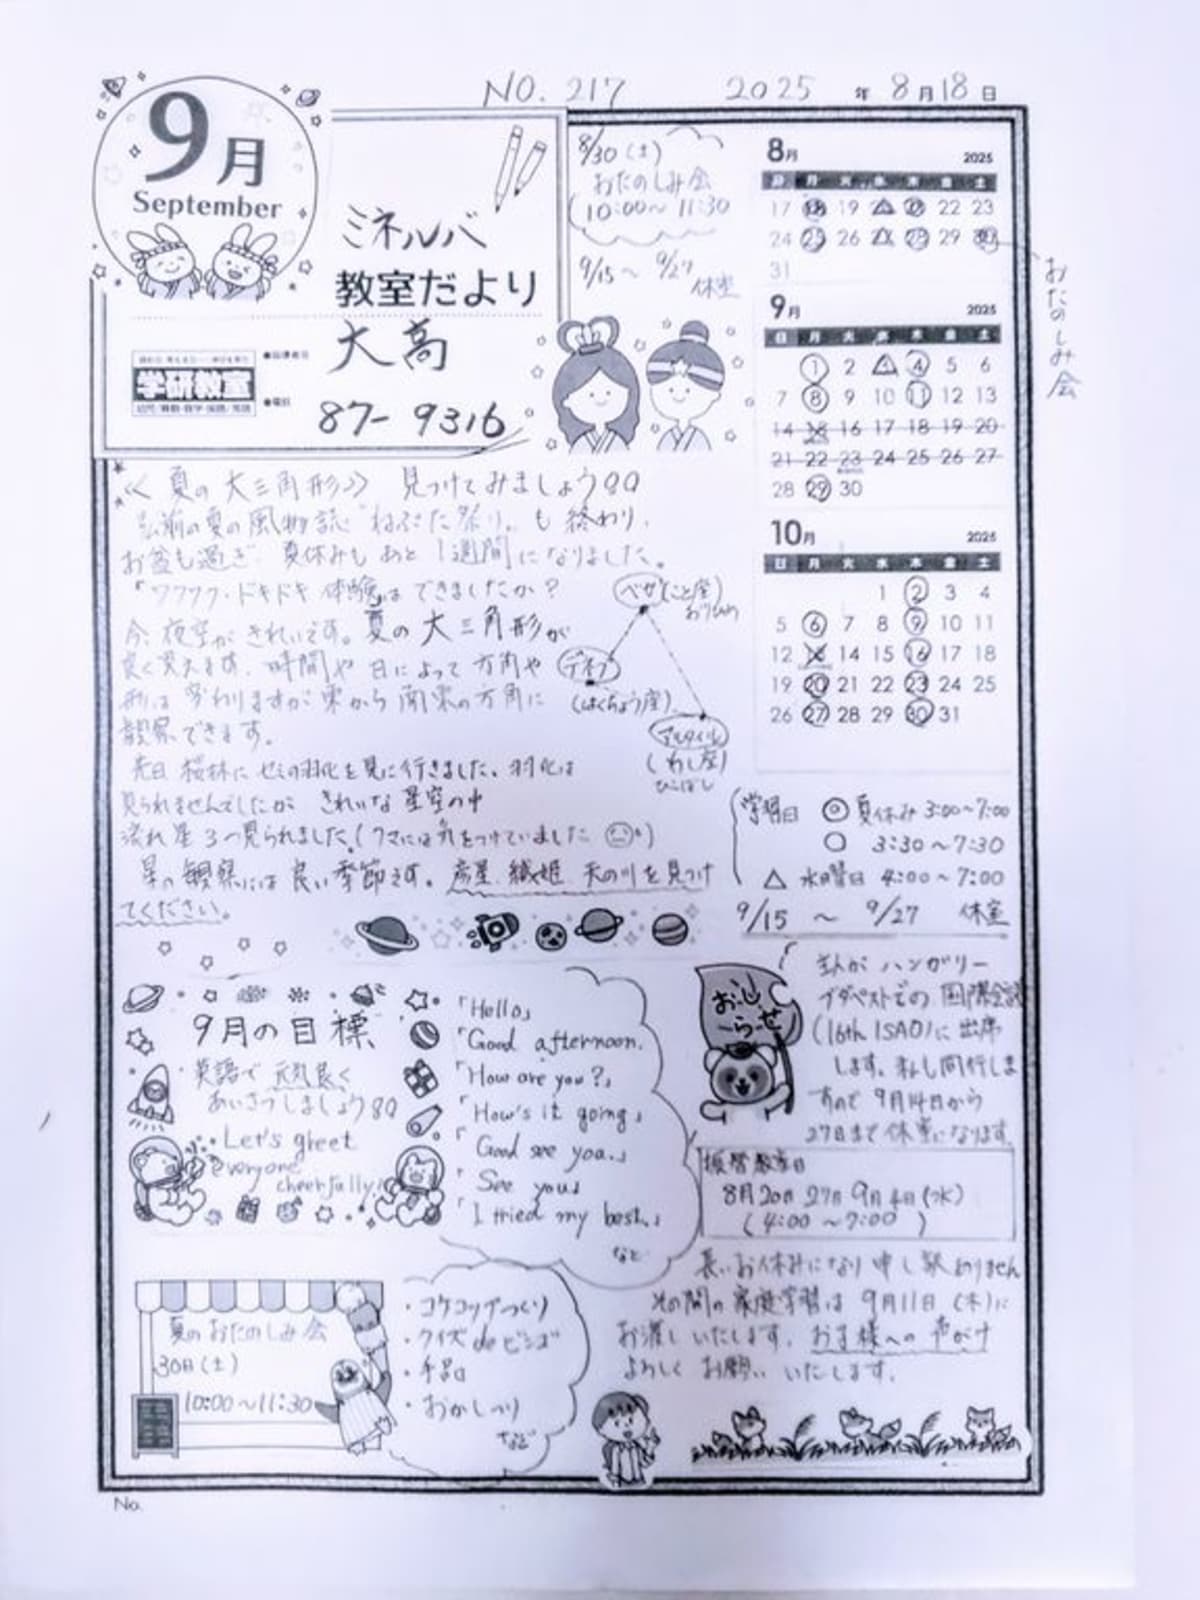 NO. 217 2025 年 8月18日
9月
September
ミネルバ
教室だより
大高
学研教室
87-9316
8/30(土)
おたのしみ会
(10:00〜11:30
9/15〜9/27
休室
8月 2025
日 月 火 水 木 金 土
17 18 19 20 21 22 23
24 25 26 27 28 29 30
31
おたのしみ会
9月 2025
日 月 火 水 木 金 土
1 2 3 4 5 6
7 8 9 10 11 12 13
14 15 16 17 18 19 20
21 22 23 24 25 26 27
28 29 30
10月 2025
日 月 火 水 木 金 土
1 2 3 4
5 6 7 8 9 10 11
12 13 14 15 16 17 18
19 20 21 22 23 24 25
26 27 28 29 30 31
≪夏の大三角形≫ 見つけてみましょう
弘前の夏の風物詩"ねぷた祭り"も終わり、
お盆も過ぎ、夏休みもあと1週間になりました。
「ワクワク・ドキドキ体験」はできましたか?
今、夜空がきれいです。夏の大三角形が
良く見えます。時間や日によって方角や
形は変わりますが東から南東の方角に
観察できます。
ベガ(こと座)
おりひめ
デネブ
(はくちょう座)
アルタイル
(わし座)
ひこぼし
先日 桜林にセミの羽化を見に行きました。羽化は
見られませんでしたが きれいな星空の中
流れ星3つ見られました。(クマには気をつけていました)
星の観察には良い季節です。彦星、織姫、天の川を見つけ
てください。
学習日 ◎夏休み 3:00〜7:00
○ 3:30〜7:30
△ 水曜日 4:00〜7:00
9/15 〜 9/27 休室
9月の目標
英語で 元気良く
あいさつしましょう
Let's greet
everyone
cheerfully!
「Hello」
「Good afternoon.
「How are you?」
「How's it going」
「Good see you.」
「See you」
「I tried my best.」
など
おしらせ
ハンガリー
ブダペストでの国際会議
(16th ISAO)に出席
します。私も同行しま
すので 9月14日から
27日まで休室になります。
振替教室日
8月20日 27日 9月4日(水)
(4:00〜7:00)
長いお休みになり申し訳ありません
その間の家庭学習は9月11日(木)に
お渡しいたします。お子様への声がけ
よろしくお願いいたします。
夏のおたのしみ会
30日(土)
10:00〜11:30
・コケコップつくり
・クイズdeビンゴ
・手品
・おかしつり
など
No.